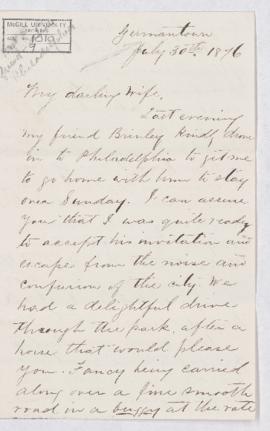 McGILL UNIVERSITY
ARCHIVES
1010
9
Germantown
July 30th 1876
My darling Wife.
Last evening
my friend Brinley kindly drove
in to Philadelphia to get me
to go home with him to stay
over Sunday. I can assure
you that I was quite ready
to accept his invitation and
escape from the noise and
confusion of the city. We
had a delightful drive
through the park, after a
horse that would please
you. Fancy being carried
along over a fine smooth
road in a buggy at the rate